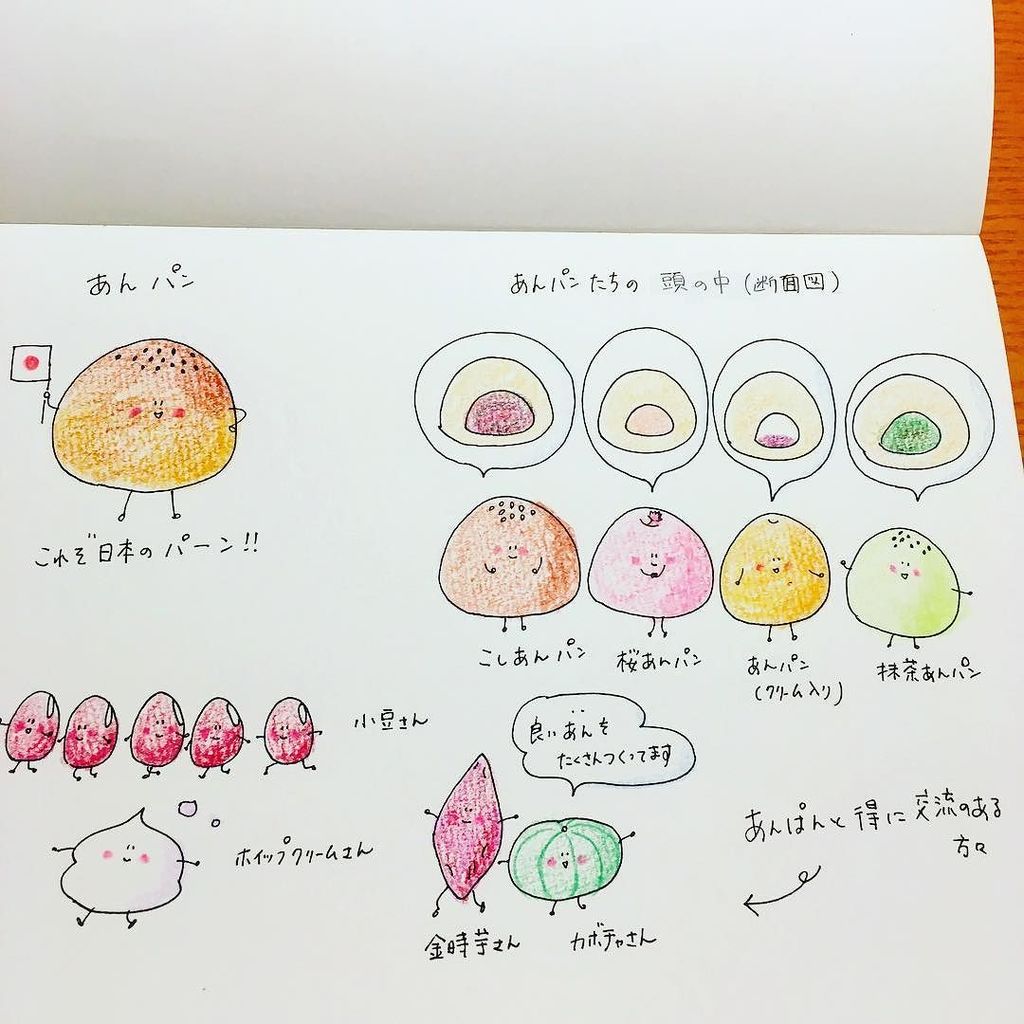 あんパン
これぞ日本のパーン!!
あんパンたちの 頭の中(断面図)
こしあんパン
桜あんパン
あんパン
(クリーム入り)
抹茶あんパン
小豆さん
ホイップクリームさん
良いあんを
たくさんつくってます
金時芋さん
カボチャさん
あんぱんと得に交流のある
方々